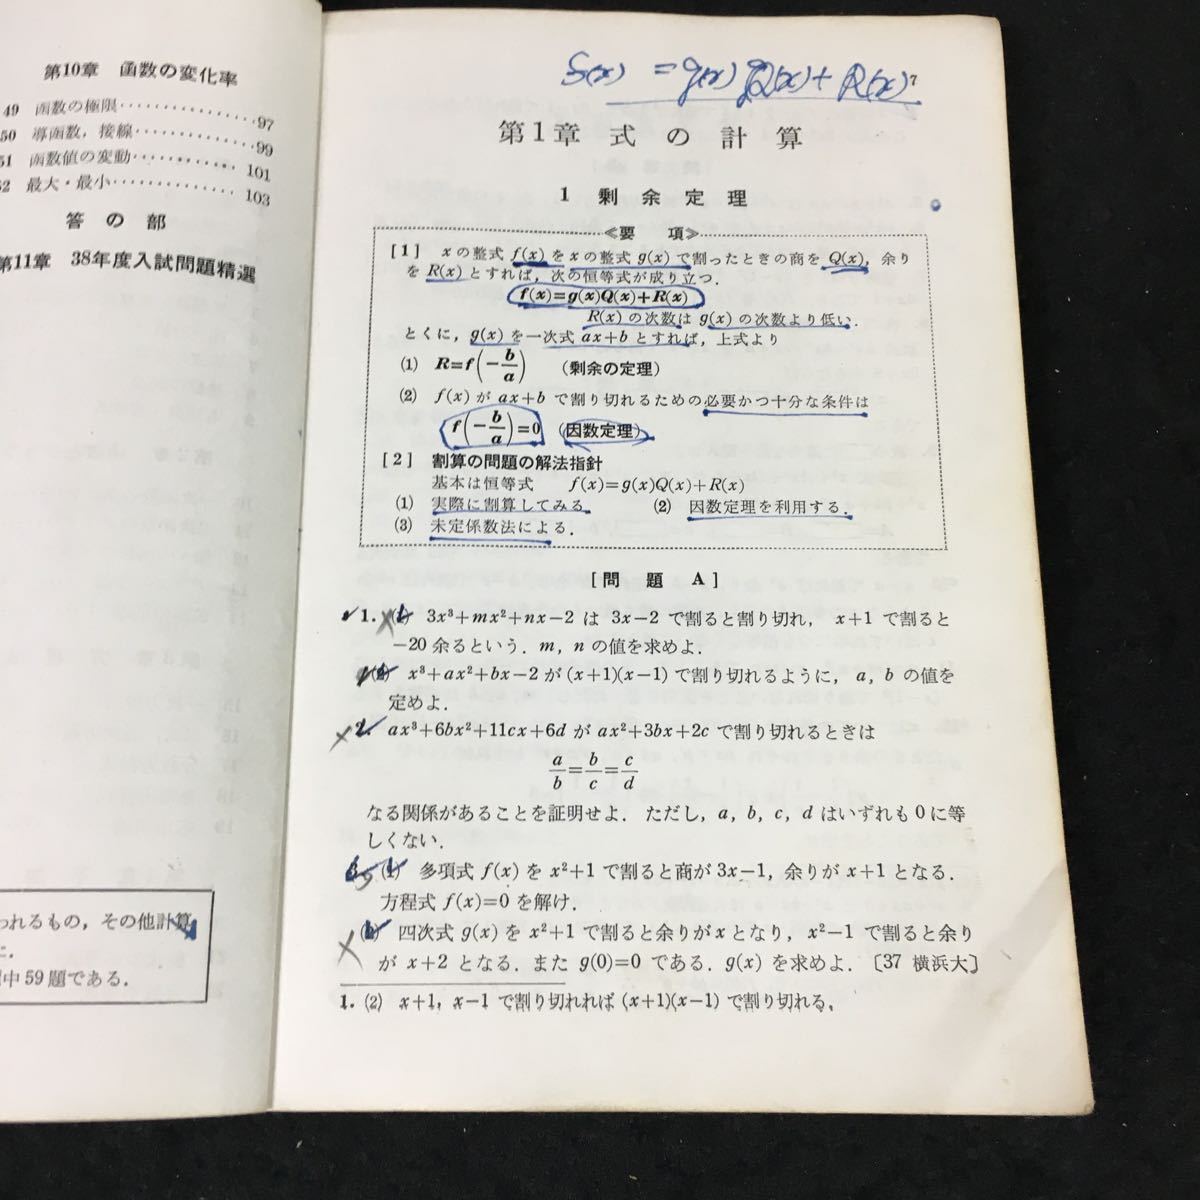 第10章 函数の変化率
49 函数の極限 97
50 導函数，接線 99
51 函数値の変動 101
52 最大・最小 103
答の部
第11章 38年度入試問題精選
われるもの，その他計算
中59題である．
f(x) = g(x)Q(x)+R(x)
7
第1章 式の計算
1 剰余定理
≪要項≫
[1] xの整式 f(x)をxの整式 g(x)で割ったときの商をQ(x)，余り
をR(x)とすれば，次の恒等式が成り立つ．
f(x)=g(x)Q(x)+R(x)
R(x)の次数はg(x)の次数より低い．
とくに，g(x)を一次式 ax+b とすれば，上式より
(1) R=f(-b/a) (剰余の定理)
(2) f(x)が ax+b で割り切れるための必要かつ十分な条件は
f(-b/a)=0 (因数定理)
[2] 割算の問題の解法指針
基本は恒等式 f(x)=g(x)Q(x)+R(x)
(1) 実際に割算してみる． (2) 因数定理を利用する．
(3) 未定係数法による．
[問題 A]
1. (1) 3x³+mx²+nx-2 は 3x-2 で割ると割り切れ，x+1 で割ると
-20余るという．m，nの値を求めよ．
(2) x³+ax²+bx-2が(x+1)(x-1)で割り切れるように，a，bの値を
定めよ．
2. ax³+6bx²+11cx+6d が ax²+3bx+2c で割り切れるときは
a/b=b/c=c/d
なる関係があることを証明せよ．ただし，a，b，c，dはいずれも0に等
しくない．
3. (1) 多項式f(x)を x²+1で割ると商が3x-1，余りがx+1となる．
方程式f(x)=0を解け．
(2) 四次式g(x)を x²+1で割ると余りがxとなり，x²-1で割ると余り
が x+2 となる．また g(0)=0 である．g(x)を求めよ．〔37 横浜大〕
1. (2) x+1，x-1で割り切れれば(x+1)(x-1)で割り切れる．